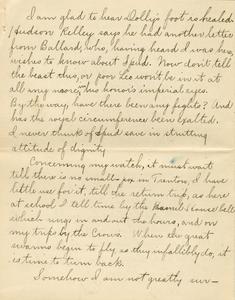 I am glad to hear Dolly's foot is healed.
Hudson Kelley says he had another letter
from Ballard, who, having heard I was here,
wishes to know about Spud. Now don't tell
the beast this, or poor Leo won't be in it at
all any more, his honor's imperial eyes.
By the way, have there been any fights? And
has the royal circumference been exalted.
I never think of Spud save in strutting
attitude of dignity.
Concerning my watch, it must wait
till there is no small-pox in Trenton, I have
little use for it, till the return trip, as here
at school I tell time by the bells
which ring in and out the hours, and on
my trips by the Crows. When the great
swarms begin to fly as they infallibly do, it
is time to turn back.
Somehow I am not greatly sur-